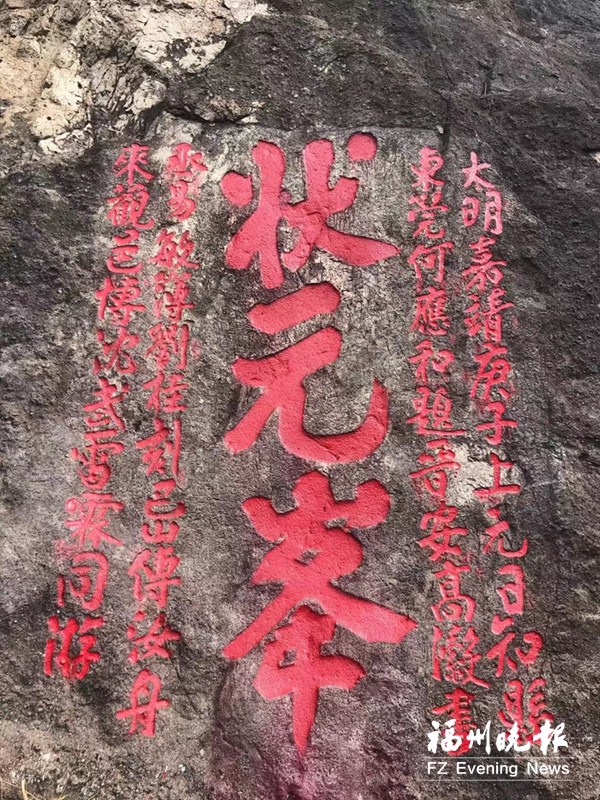 大明嘉靖庚子上元日知縣
東莞何應和題晉安高瀫書
狀元峯
丞易敏簿劉桂刻山傅汝舟
來觀邑博沈雷霖同游
福州晚報
FZ Evening News